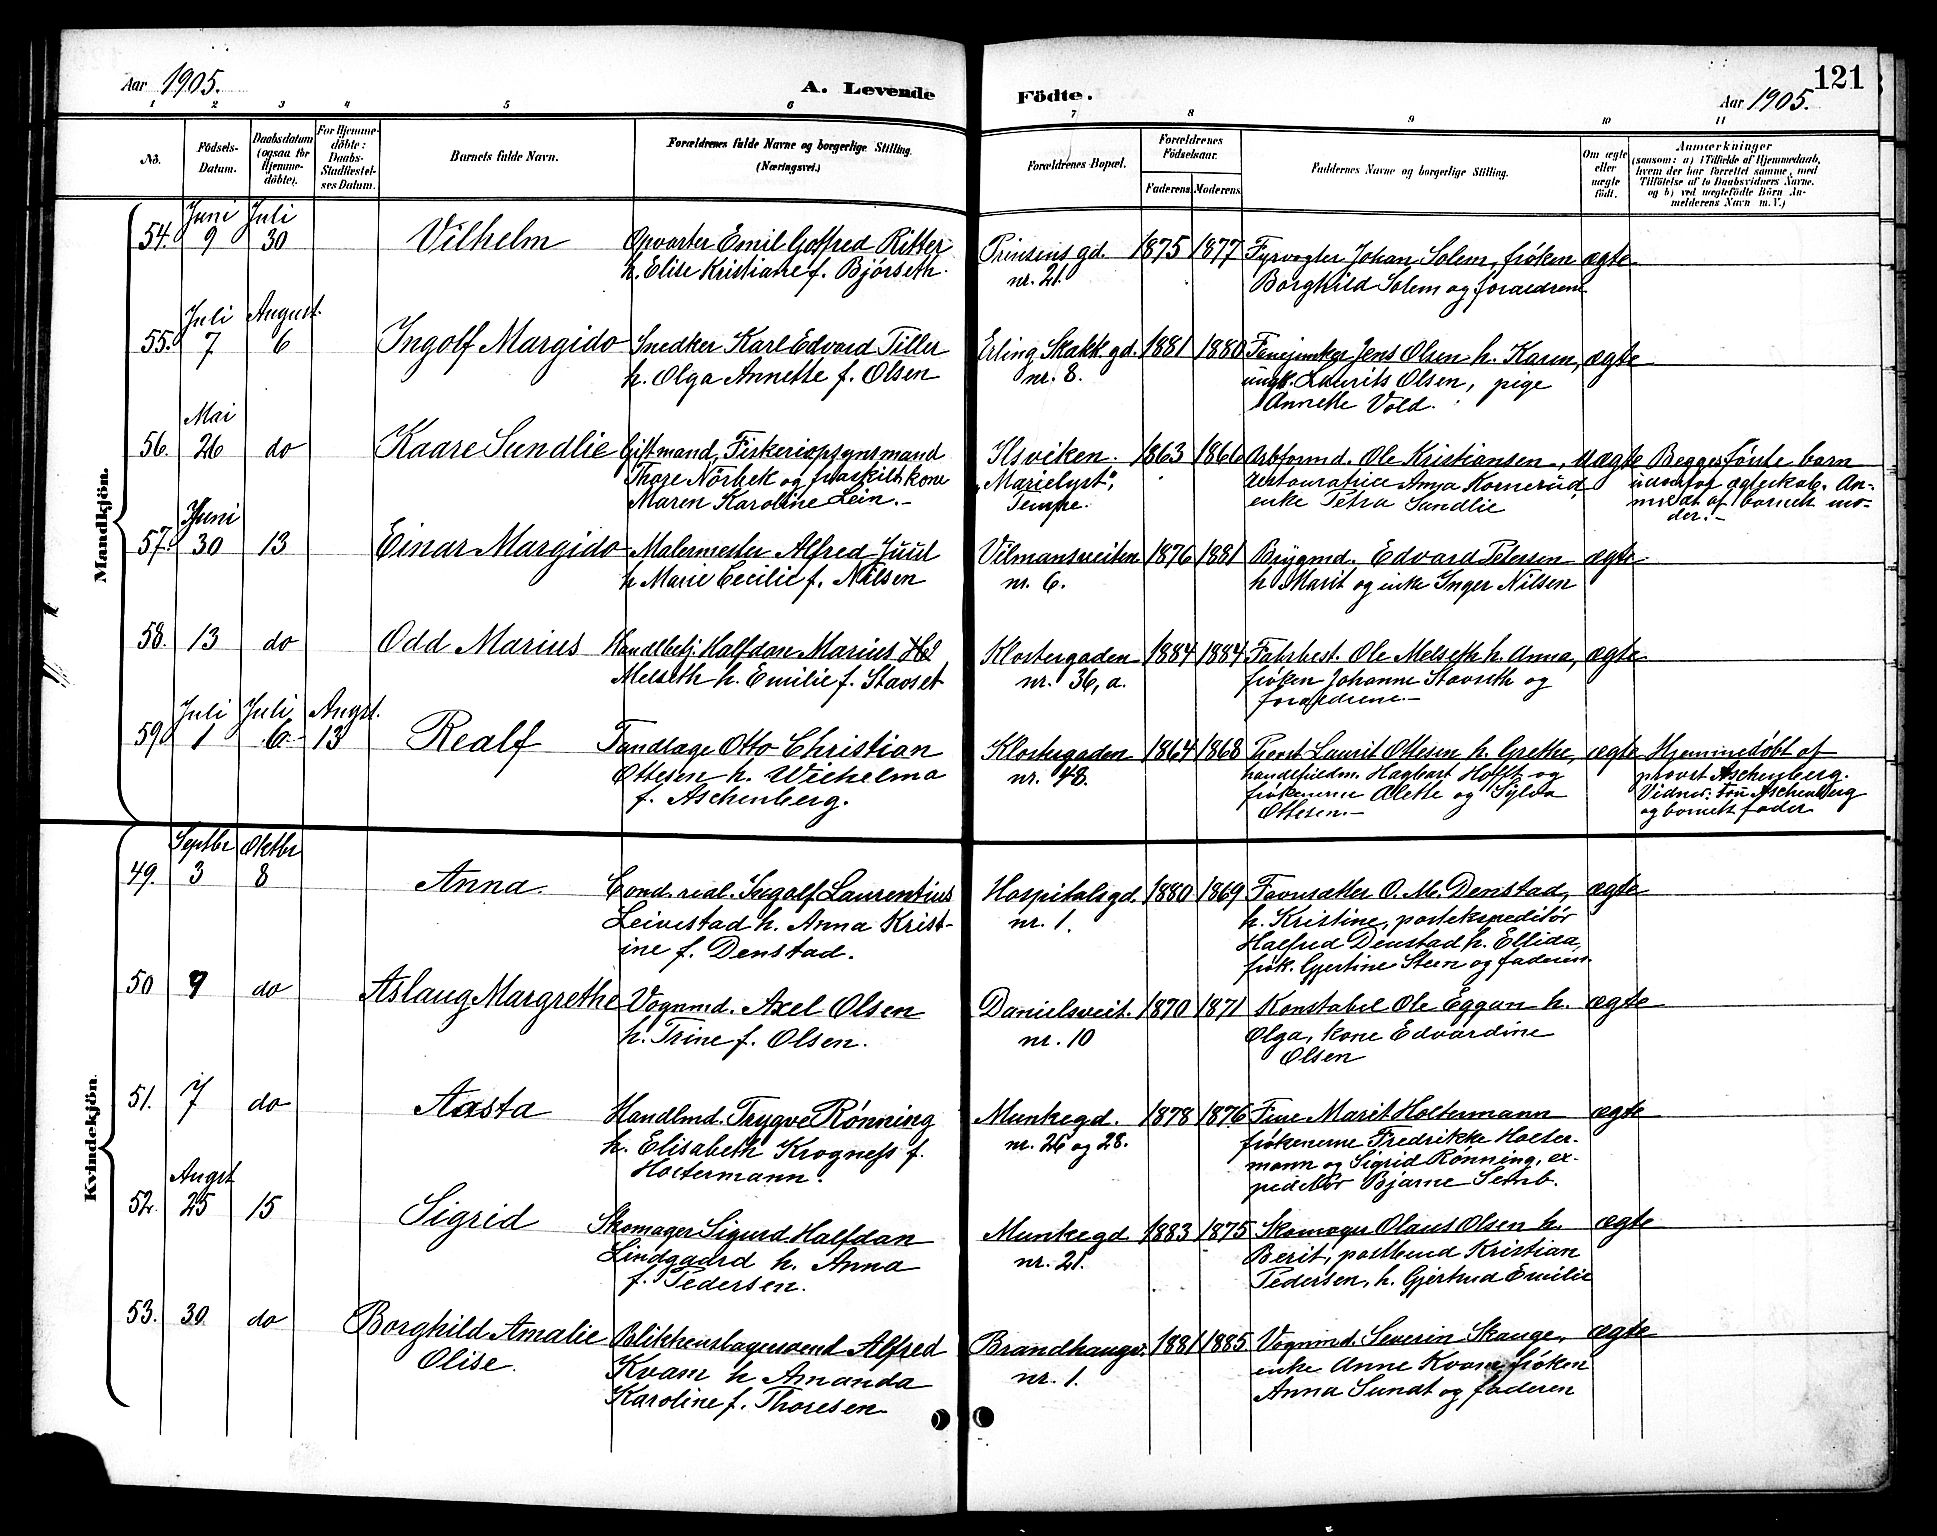 Aar 1905. A. Levende Födte. Aar 1905. 121
1 2 3 4 5 6 7 8 9 10 11
No. Födsels-Datum. Daabsdatum (ogsaa for Hjemmedöbte). For Hjemmedöbte: Daabs-Stadfæstelses Datum. Barnets fulde Navn. Forældrenes fulde Navne og borgerlige Stilling. (Næringsvei.) Forældrenes Bopæl. Forældrenes Födselsaar. Faderens. Moderens. Faddernes Navne og borgerlige Stilling. Om ægte eller uægte födt. Anmærkninger (saasom: a) i Tilfælde af Hjemmedaab, hvem der har forrettet samme, med Tilföielse af to Daabsvidners Navne, og b) ved uægtefödte Börn Anmelderens Navn m. V.)
Mandkjön.
Juni Juli
54. 9 30 Vilhelm Opvarter Emil Gotfred Ritter Prinsens gd. 1875 1877 Fyrvogter Johan Solem, frøken ægte
h. Elise Kristiane f. Bjørseth. nr. 21. Borghild Solem og forældrene
Juli August.
55. 7 6 Ingolf Margido Snedker Karl Edvard Tiller Erling Skakk. gd. 1881 1880 Fanejunker Jens Olsen h. Karen, ægte
h. Olga Annette f. Olsen nr. 8. ungk. Laurits Olsen, pige
Annette Vold.
Mai
56. 26 do Kaare Sundlie Giftmand, Fiskeriopsynsmand Ilsviken. 1863 1866 Arbformd. Ole Kristiansen, uægte Begges første barn
Thore Nörbek og fraskilt kone „Marielyst", Anna Kornerud, udenfor ægteskab. An-
Maren Karoline Lein.- Tempe. enke Petra Sundlie meldt af barnets mo-
der.-
Juni
57. 30 13 Einar Margido Malermester Alfred Juul Vilmansveiten 1876 1881 Brygmd. Edvard Petersen ægte
h Marie Cecilie f. Nilsen nr. 6. h Marit og enke Inger Nilsen
58. 13 do Odd Marius Handlbetj. Halfdan Marius Klostergaden 1884 1884 Fabrbest. Ole Melseth h. Anna, ægte
Melseth h. Emilie f. Stavset nr. 36, a. frøken Johanne Stavseth og
forældrene.-
Juli Juli Augst.
59. 1 6 13 Realf Tandlæge Otto Christian Klostergaden 1864 1868 Provst Laurit Ottesen h. Grethe, ægte Hjemmedøbt af
Ottesen h. Wilhelma nr. 48. handelsfuldm. Hagbart Hofft og provst Aschenberg.
f. Aschenberg. frøkenerne Alette og Sylva Vidner: Fru Aschenberg
Ottesen.- og barnets fader
Kvindekjön.
Septbr Oktbr
49. 3 8 Anna Cand. real. Ingolf Laurentius Hospitalsgd. 1880 1869 Favnsætter O. M. Denstad, ægte
Leivestad h. Anna Krist- nr. 1. h. Kristine, postekspeditør
ine f. Denstad. Halfred Denstad h. Ellida,
frøk. Gjertine Steen og faderen
50 9 do Aslaug Margrethe Vognmd. Axel Olsen Danielsveit. 1870 1871 Konstabel Ole Eggan h. ægte
h. Trine f. Olsen. nr. 10 Olga, kone Edvardine
Olsen
51. 7 do Aasta Handlmd. Trygve Rønning Munkegd. 1878 1876 Frue Marit Holtermann ægte
h. Elisabeth Krogness f. nr. 26 og 28. frøkenerne Fredrikke Holter-
Holtermann. mann og Sigrid Rønning, ex-
peditør Bjarne Semb.
Augst
52. 25 15 Sigrid Skomager Sigurd Halfdan Munkegd 1883 1875 Skomager Olaus Olsen h. ægte
Lindgaard h. Anna nr. 21. Berit, postbud Kristian
f. Pedersen. Pedersen, h. Gjertrud Emilie
53. 30 do Borghild Amalie Blikkenslagersvend Alfred Brandhaugv. 1881 1885 Vognmd. Severin Skauge, ægte
Olise. Kvam h Amanda nr. 1. enke Anne Kvam, frøken
Karoline f. Thoresen Anna Sundt og faderen